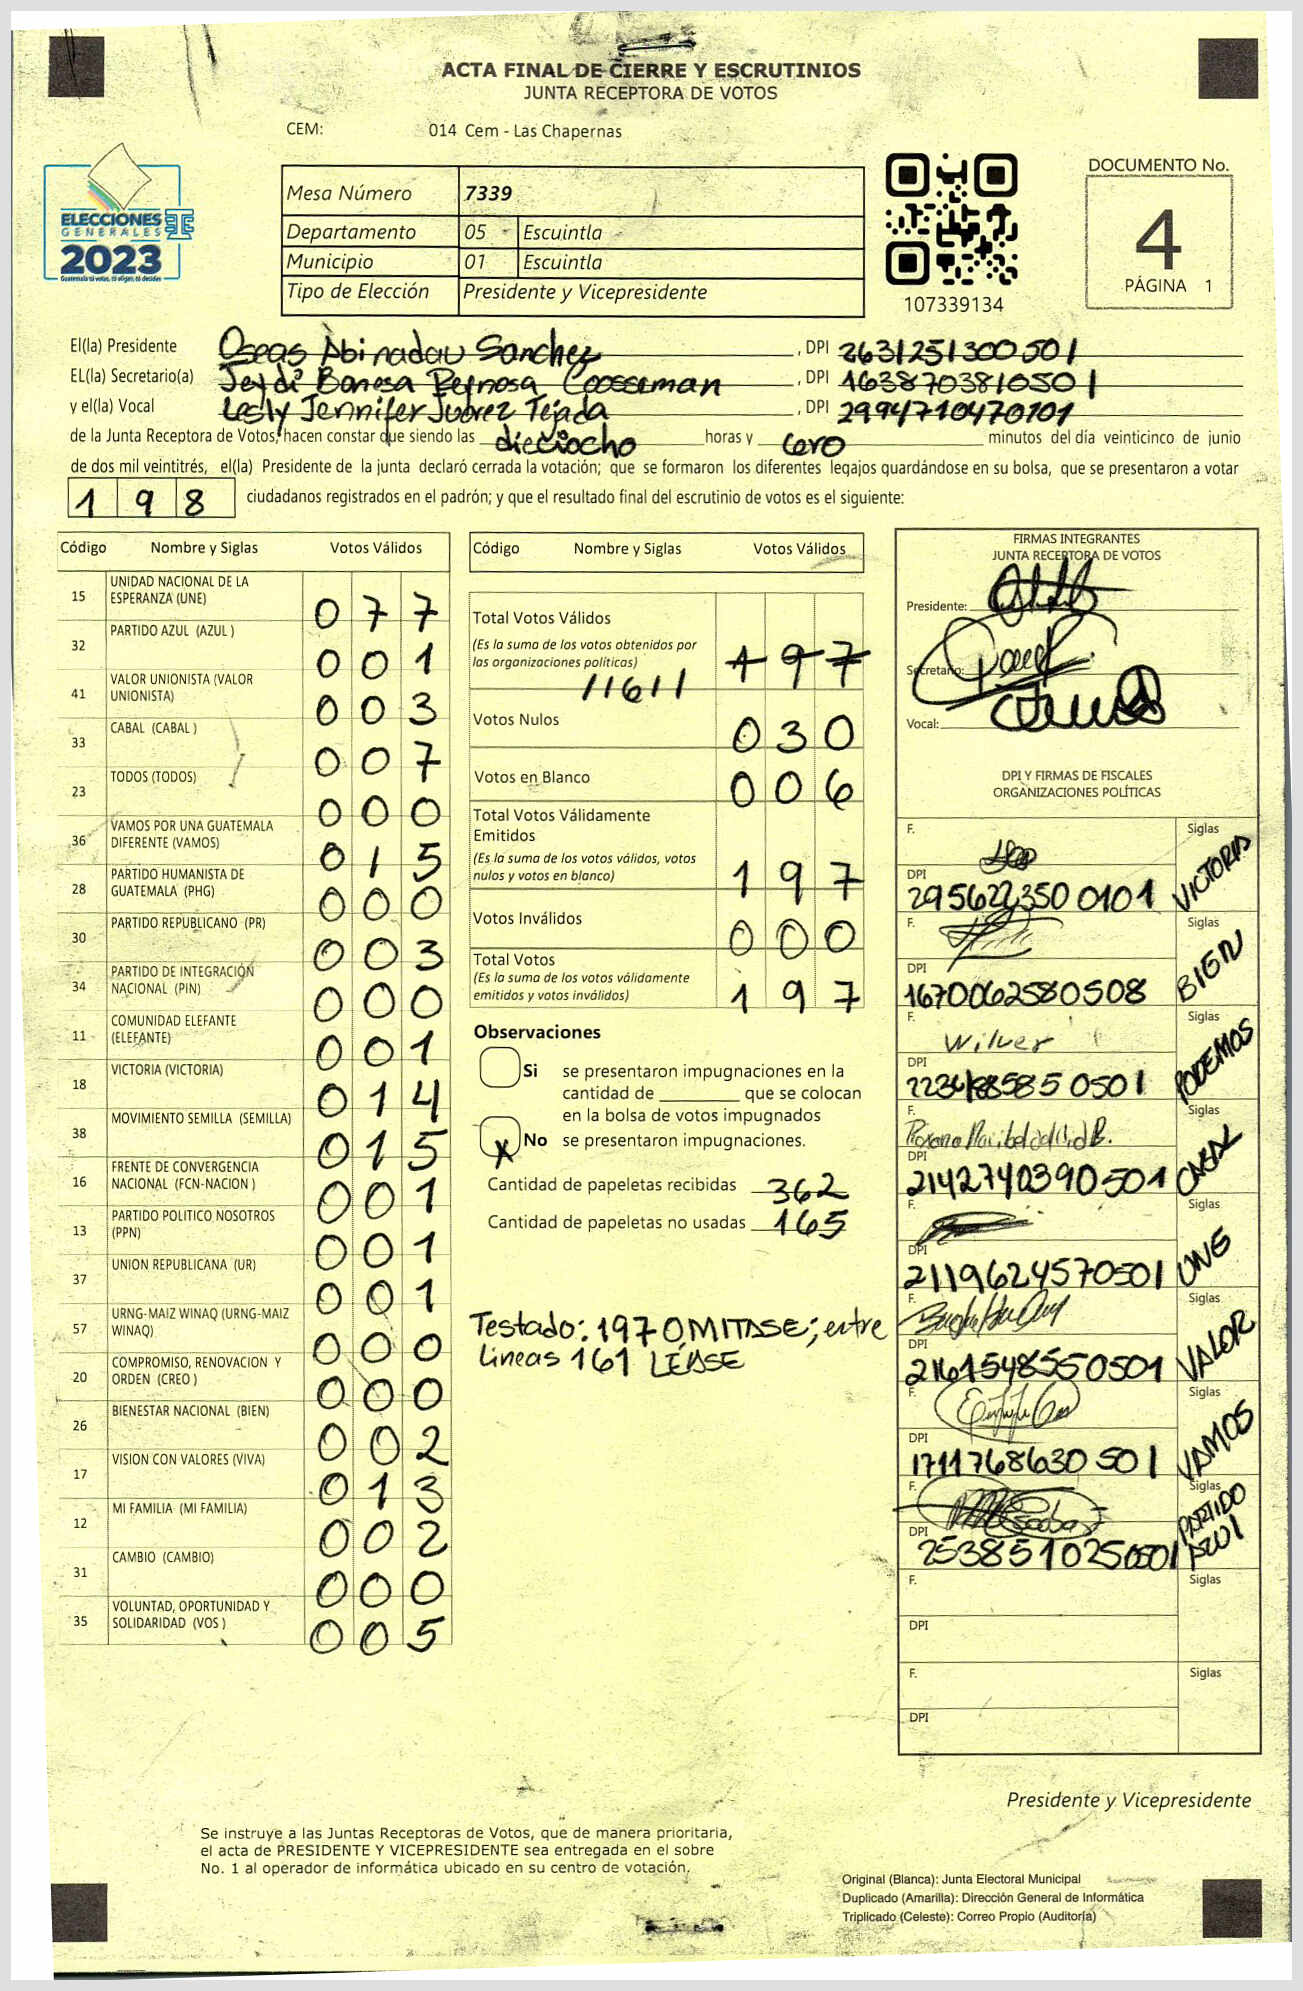 ACTA FINAL DE CIERRE Y ESCRUTINIOS
JUNTA RECEPTORA DE VOTOS
CEM: 014 Cem - Las Chapernas
ELECCIONES
GENERALES
2023
Guatemala tú votas, tú eliges, tú decides
Mesa Número 7339
Departamento 05 Escuintla
Municipio 01 Escuintla
Tipo de Elección Presidente y Vicepresidente
107339134
DOCUMENTO No.
4
PÁGINA 1
El(la) Presidente Oseas Abinadau Sanchez, DPI 2631251300501
EL(la) Secretario(a) Jeydi Banesa Reynosa Coosseman, DPI 1638703810501
y el(la) Vocal Lesly Jennifer Juárez Tejada, DPI 2994710470101
de la Junta Receptora de Votos, hacen constar que siendo las dieciocho horas y cero minutos del día veinticinco de junio
de dos mil veintitrés, el(la) Presidente de la junta declaró cerrada la votación; que se formaron los diferentes legajos guardándose en su bolsa, que se presentaron a votar
198 ciudadanos registrados en el padrón; y que el resultado final del escrutinio de votos es el siguiente:
Código Nombre y Siglas Votos Válidos
15 UNIDAD NACIONAL DE LA ESPERANZA (UNE) 077
32 PARTIDO AZUL (AZUL ) 001
41 VALOR UNIONISTA (VALOR UNIONISTA) 003
33 CABAL (CABAL ) 007
23 TODOS (TODOS) 000
36 VAMOS POR UNA GUATEMALA DIFERENTE (VAMOS) 015
28 PARTIDO HUMANISTA DE GUATEMALA (PHG) 000
30 PARTIDO REPUBLICANO (PR) 003
34 PARTIDO DE INTEGRACIÓN NACIONAL (PIN) 000
11 COMUNIDAD ELEFANTE (ELEFANTE) 001
18 VICTORIA (VICTORIA) 014
38 MOVIMIENTO SEMILLA (SEMILLA) 015
16 FRENTE DE CONVERGENCIA NACIONAL (FCN-NACION ) 001
13 PARTIDO POLITICO NOSOTROS (PPN) 001
37 UNION REPUBLICANA (UR) 001
57 URNG-MAIZ WINAQ (URNG-MAIZ WINAQ) 000
20 COMPROMISO, RENOVACION Y ORDEN (CREO ) 000
26 BIENESTAR NACIONAL (BIEN) 002
17 VISION CON VALORES (VIVA) 013
12 MI FAMILIA (MI FAMILIA) 002
31 CAMBIO (CAMBIO) 000
35 VOLUNTAD, OPORTUNIDAD Y SOLIDARIDAD (VOS ) 005
Código Nombre y Siglas Votos Válidos
Total Votos Válidos
(Es la suma de los votos obtenidos por
las organizaciones políticas) 197
Votos Nulos 030
Votos en Blanco 006
Total Votos Válidamente
Emitidos
(Es la suma de los votos válidos, votos
nulos y votos en blanco) 197
Votos Inválidos 000
Total Votos
(Es la suma de los votos válidamente
emitidos y votos inválidos) 197
Observaciones
Si se presentaron impugnaciones en la
cantidad de ________ que se colocan
en la bolsa de votos impugnados
X No se presentaron impugnaciones.
Cantidad de papeletas recibidas 362
Cantidad de papeletas no usadas 165
Testado: 197 OMITASE; entre
Lineas 161 LÉASE
FIRMAS INTEGRANTES
JUNTA RECEPTORA DE VOTOS
Presidente:
Secretario:
Vocal:
DPI Y FIRMAS DE FISCALES
ORGANIZACIONES POLÍTICAS
F. Siglas VICTORIA
DPI
F. Siglas BIEN
DPI 1670062580508
F. Wilver Siglas PODEMOS
DPI
F. Siglas CABAL
DPI 2142740390501
F. Siglas UNE
DPI 2119624570501
F. Siglas VALOR
DPI 2161548550501
F. Siglas VAMOS
DPI 1711768630501
F. Siglas PARTIDO AZUL
DPI 2538510250501
F. Siglas
DPI
F. Siglas
DPI
Presidente y Vicepresidente
Se instruye a las Juntas Receptoras de Votos, que de manera prioritaria,
el acta de PRESIDENTE Y VICEPRESIDENTE sea entregada en el sobre
No. 1 al operador de informática ubicado en su centro de votación.
Original (Blanca): Junta Electoral Municipal
Duplicado (Amarilla): Dirección General de Informática
Triplicado (Celeste): Correo Propio (Auditoría)